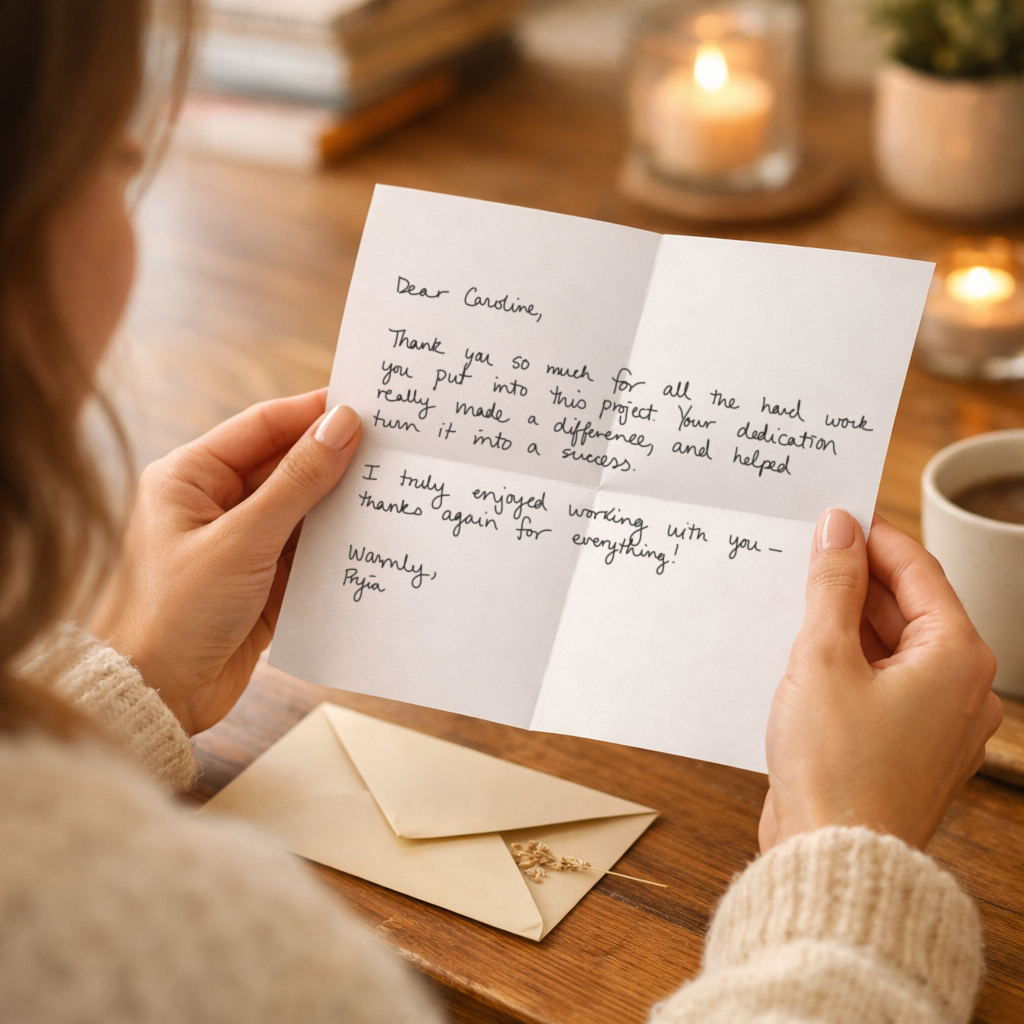 Dear Caroline,
Thank you so much for all the hard work
you put into this project. Your dedication
really made a difference, and helped
turn it into a success.
I truly enjoyed working with you –
thanks again for everything!
Warmly,
Pryia